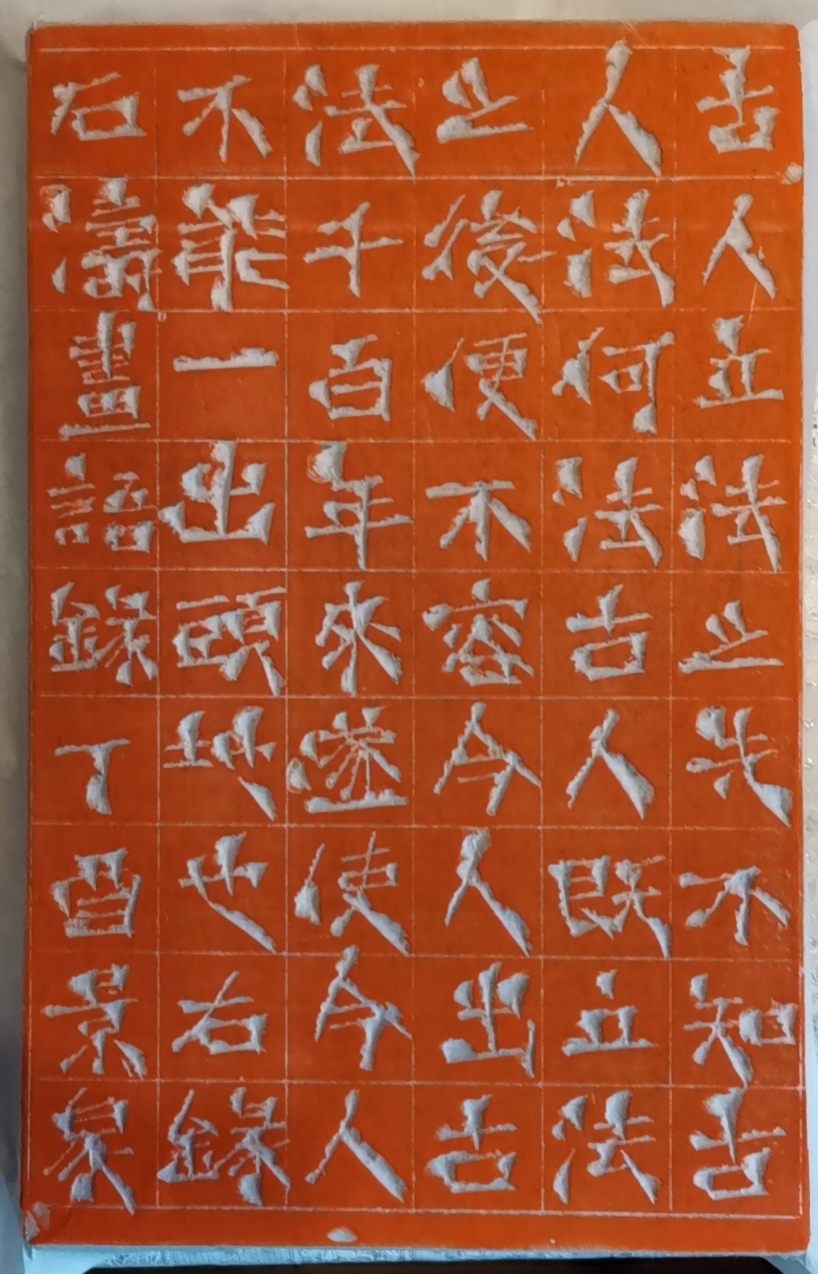 古人立法之先不知古
人法何法古人既立法
之後便不容今人出古
法千百年來遂使今人
不能一出頭地也右錄
石濤畫語錄丁酉景